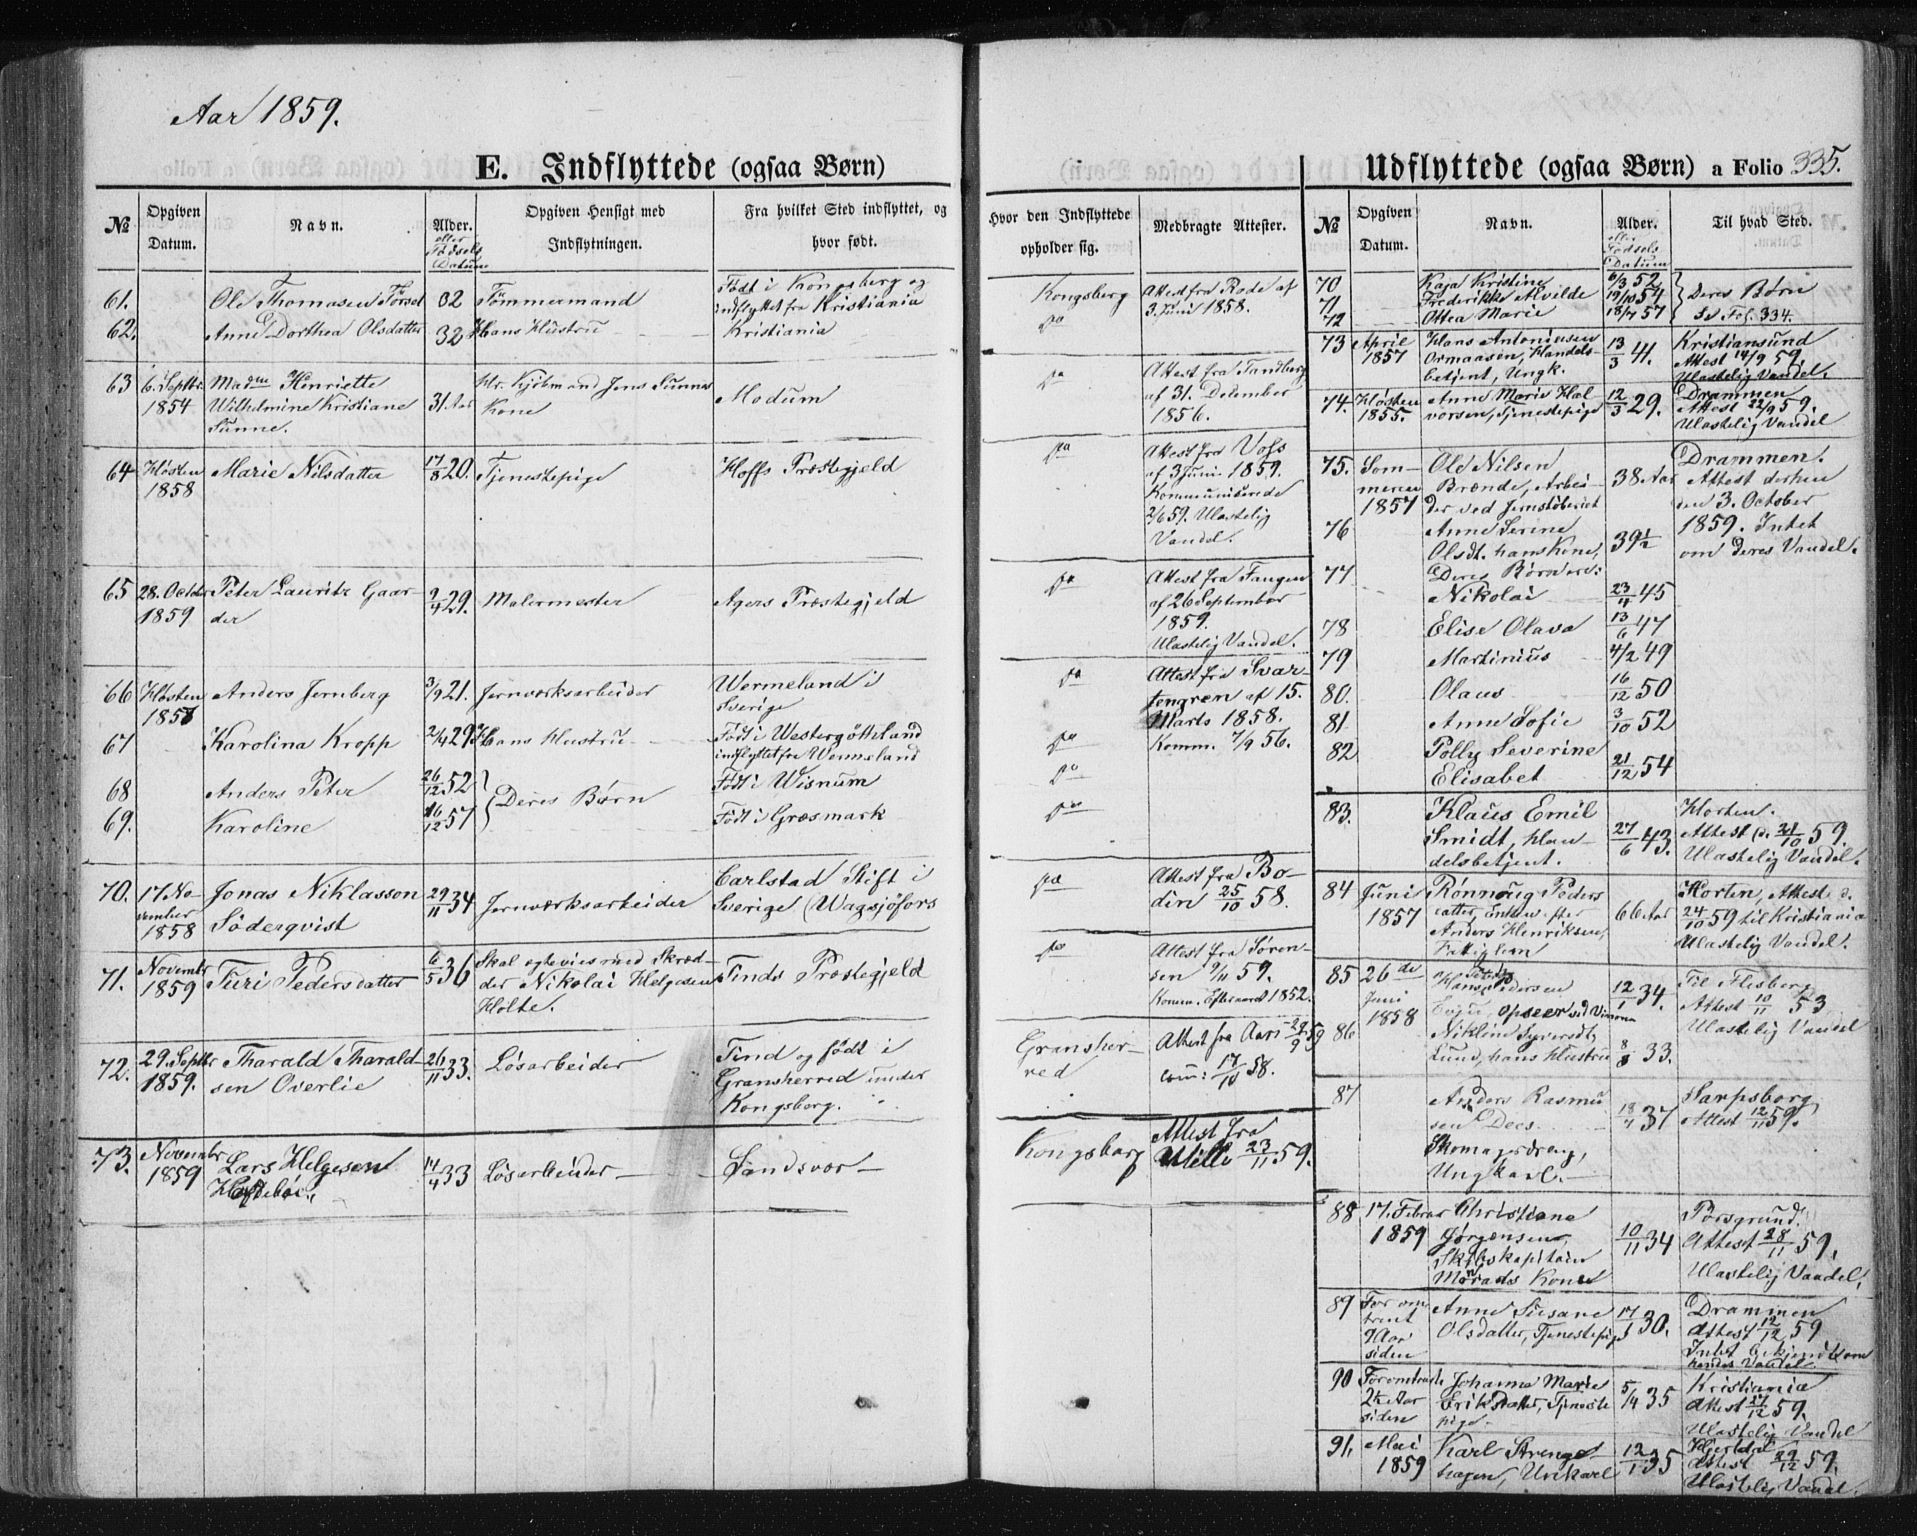 Aar 1859.
E. Indflyttede (ogsaa Børn)
Udflyttede (ogsaa Børn) a Folio 335.
№ Opgiven Datum. Navn. Alder. eller Fødsels Datum Opgiven Hensigt med Indflytningen. Fra hvilket Sted indflyttet, og hvor født. Hvor den Indflyttede opholder sig. Medbragte Attester.
61. Ole Thomasen 32 Tømmermand Født i Kongsberg og
indflyttet fra Kristiania Kongsberg Attest fra Rode af
3. Juni 1858.
62. Anne Dorthea Olsdatter 32 Hans Hustru Kristiania do
63 6. Septbr. 1854 Madm Henriette
Wilhelmine Kristiane
Sunne. 31 Aar Hr. Kjøbmand Jens Sunnes
Kone Modum do Attest fra Tandberg
af 31. December
1856.
64 Høsten 1858 Marie Nilsdatter 17/8 20. Tjenestepige Hoffs Præstegjeld do Attest fra Voss
af 3 Juni 1859.
Kommuniserede
2/6 59. Ulastelig
Vandel.
65 28. Octbr 1859 Peter Lauritz Gaar-
der 9/4 29. Malermester Agers Præstegjeld do Attest fra Fangen
af 26 September
1859.
Ulastelig Vandel.
66 Høsten 1858 Anders Jernberg 3/9 21. Jernværksarbeider Wermeland i
Sverige do Attest fra Svar-
tengren af 15.
Marts 1858.
67 Karolina Kropp 2/4 29. Hans Hustru Født i Westergötland
indflyttet fra Wermeland do Komm. 7/9 56.
68 Anders Peter 26/12 52 Deres Børn Født i Wisnum do
69. Karoline 16/12 57 Født i Græsmark do
70. 17 No-
vember
1858 Jonas Niklasson
Söderqvist 29/11 34 Jernværksarbeider Carlstad Stift i
Sverige (Wagsjöfors do Attest fra Bo-
din 25/10 58.
71. Novembr 1859 Turi Pedersdatter 6/5 36 Skal egtevies med Skræd-
der Nikolai Helgesen
Holte. Tinds Præstegjeld do Attest fra Søren-
sen 9/11 59.
Komm. Efteraaret 1852.
72. 29. Septbr 1859. Tharald Tharald-
sen Overlie 26/11 33. Løsarbeider Tind og født i
Gransherred under
Kongsberg. Gransher-
red Attest fra Aars 29/9 59
com: 17/10 58.
73. Novembr 1859 Lars Helgesen 14/4 33 Løsarbeider Sandsvær Kongsberg Attest fra
Wille 23/11 59.
№ Opgiven Datum. Navn. Alder. eller Fødsels Datum Til hvad Sted.
70 Kaja Kristine 6/3 52
71 Frederikke Alvilde 19/10 54 Deres Børn
72 Ottea Marie 18/7 57 Se Fol. 334.
73 April 1857 Hans Antoninsen
Ormaasen, Handels-
betjent, Ungk. 13/3 41. Kristiansund
Attest 14/9 59.
Ulastelig Vandel.
74. Høsten 1855. Anne Marie Hal-
vorsen, Tjenestepige 12/3 29. Drammen
Attest 22/9 59.
Ulastelig Vandel
75. Som-
meren
1857 Ole Nilsen
Brænde, Arbei-
der ved Jernstøberiet 38 Aar Drammen.
Attest derhen
den 3. October
1859. Intet
om deres Vandel.
76 Anne Serine
Olsdt. hans Kone, 39½
77 Deres Børn ere:
Nikolai 23/4 45
78 Elise Olava 13/6 47
79 Martinius 4/2 49
80. Olaus 16/12 50
81 Anne Sofie 3/10 52
82 Polly Severine
Elisabet 21/12 54
83. Klaus Emil
Smidt, Han-
delsbetjent. 27/6 43. Horten.
Attest d. 21/10 59.
Ulastelig Vandel.
84 Juni 1857 Rønnoug Peders
datter, Enke efter
Anders Henriksen,
Fattiglem 66 Aar Horten, Attest d.
24/10 59 til Kristiania
Ulastelig Vandel.
85 26de Juni 1858 Hans Pedersen
Opseer 12/1 34. Til Flesberg
Attest 10/11 53
Ulastelig Vandel
86 Lund, hans Hustru 8/8 33.
87 Anders Rasmu
sen Dees
Skomagerdreng,
Ungkarl. 18/7 37 Sarpsborg
Attest 12/11 59.
88 17. Februar 1859 Christiane
Jørgensen,
Skibskapitain
Kone 10/11 34 Porsgrund.
Attest 28/11 59.
Ulastelig Vandel.
89 For om-
trent
9 Aar
siden Anne Susane
Olsdatter, Tjenestepige 17/1 30. Drammen
Attest 12/12 59
Intet bekjendt om
hendes Vandel
90 For omtrent
2½ Aar
siden Johanne Marie
Eriksdatter, Tjeneste
pige 5/4 35 Kristiania
Attest 27/12 59.
Ulastelig Vandel
91. Mai 1859 Karl Strenge-
hagen, Unkarl 12/1 35 Hjerdal
Attest 29/12 59.
Ulastelig Vandel.